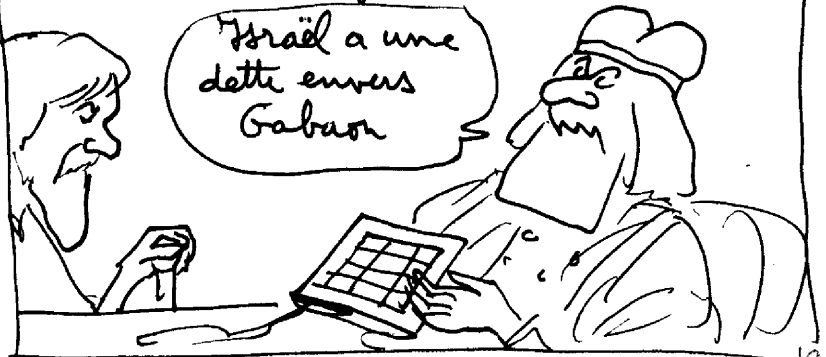 Israël a une
dette envers
Gabaon